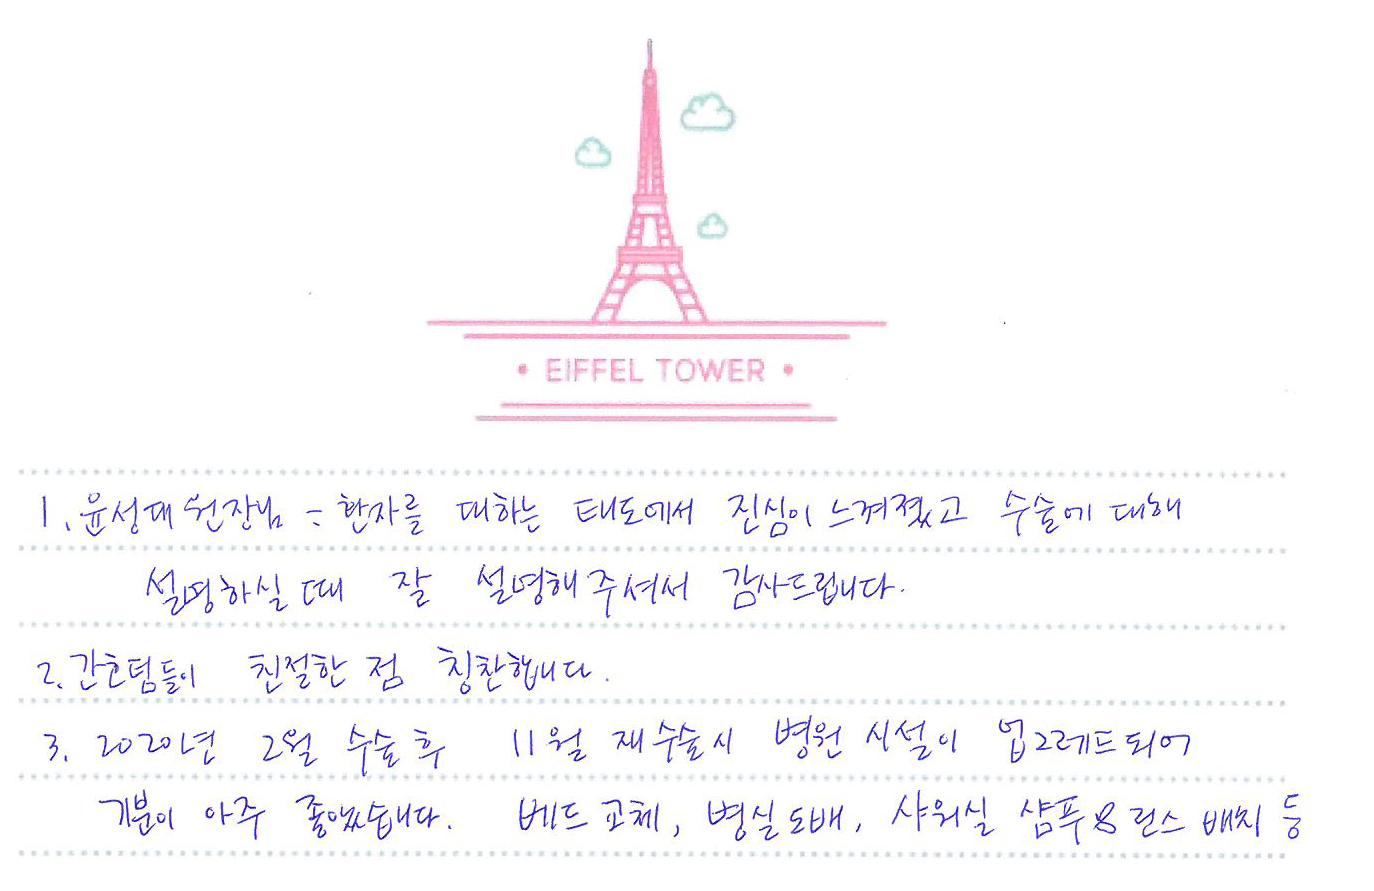 • EIFFEL TOWER •
1. 윤성대 원장님 : 환자를 대하는 태도에서 진심이 느껴졌고 수술에 대해
설명하실 때 잘 설명해 주셔서 감사드립니다.
2. 간호팀들이 친절한 점 칭찬합니다.
3. 2020년 2월 수술 후 11월 재수술시 병원 시설이 업그레드되어
기분이 아주 좋았습니다. 베드 교체, 병실 도배, 샤워실 샴푸 & 린스 배치 등